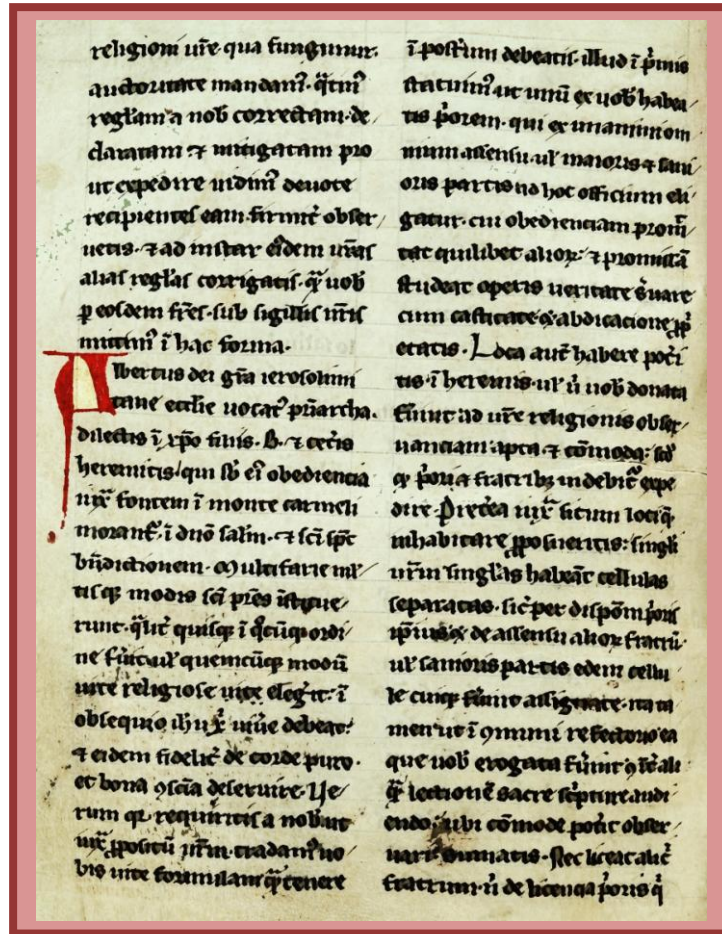 religioni ur̄e qua fungimur.
auctoritate mandam⁹. q̄tin⁹
regl̄am a nob̄ correctam. de
claratam ⁊ mitigatam pro
ut expedire uidim⁹ deuote
recipientes eam firmit̄ obser
uetis. ⁊ ad instar eīdem ur̄as
alias regl̄as corrigatis. q̄ȝ uob̄
p eosdem fr̄es. sub sigillis nr̄is
mittim⁹ ī hac forma.
Albertus dei gr̄a ierosolimi
tane eccl̄ie uocat⁹ pr̄iarcha.
dilectis ī xp̄o filiis. B. ⁊ cet̄is
heremitis qui sb̄ ei⁹ obediencia
iux̄ fontem ī monte carmeli
morant̄. ī dn̄o salm̄. ⁊ sc̄i sp̄c
bn̄dictionem. Multifarie ml̄
tisq; modis sc̄i pr̄es īstitue
runt. q̄lit̄ quisq; ī q̄cūq; ordi
ne fūit. ul̄ quemcūq; modū
uite religiose uite eleg̃it. ī
obsequio ih̄u x̄ uiūe debeat.
⁊ eidem fidelit̄ de corde puro.
et bona ꝯsc̄ia deseruire. Ue
rum qr̄ requiritis a nob̄ ut
iux̄ ꝓpositū ur̄m. tradam⁹ uo
bis uite formulam q̄ȝ tenere
ī post̄um debeatis. illud ī p̄mis
statuim⁹ ut unū ex uob̄ habea
tis p̄orem. qui ex unanimi om
nium assensu. ul̄ maioris ⁊ sani
oris partis ad hoc officium eli
gatur. cui obedienciam prom̄i
tat quilibet alior̄. ⁊ promissā
studeat operis ueritate s̄uare
cum castitate ⁊ abdicacione ꝓp̄
etatis. Loca aut̄ habere pot̄i
tis. ī heremis. ul̄ ū uob̄ donata
fūint ad ur̄e religionis obser
uanciam apta ⁊ cōmoda. sc̄d
q; p̄ori ⁊ fratrib; uidebit̄ expe
dire. Pret̄ea iux̄ situm loci q̄
inhabitare ꝓposueritis. singl̄i
ur̄m singl̄as habeāt cellulas
separatas. sic̄ per dispōm p̄oris
ip̄ius ⁊ de assensu alior̄ fratrū.
ul̄ sanioris partis edem cellu
le cuiq; fūint assignate. ita ta
men ut ī ꝯmuni refectorio ea
que uob̄ erogata fūint ꝯīt̄ ali
q̄ȝ lectionē sacre sc̄pture audi
endo. ubi cōmode pot̄it obser
uari sumatis. Nec liceat alic̄
fratrum. ū de licencia p̄oris q̄